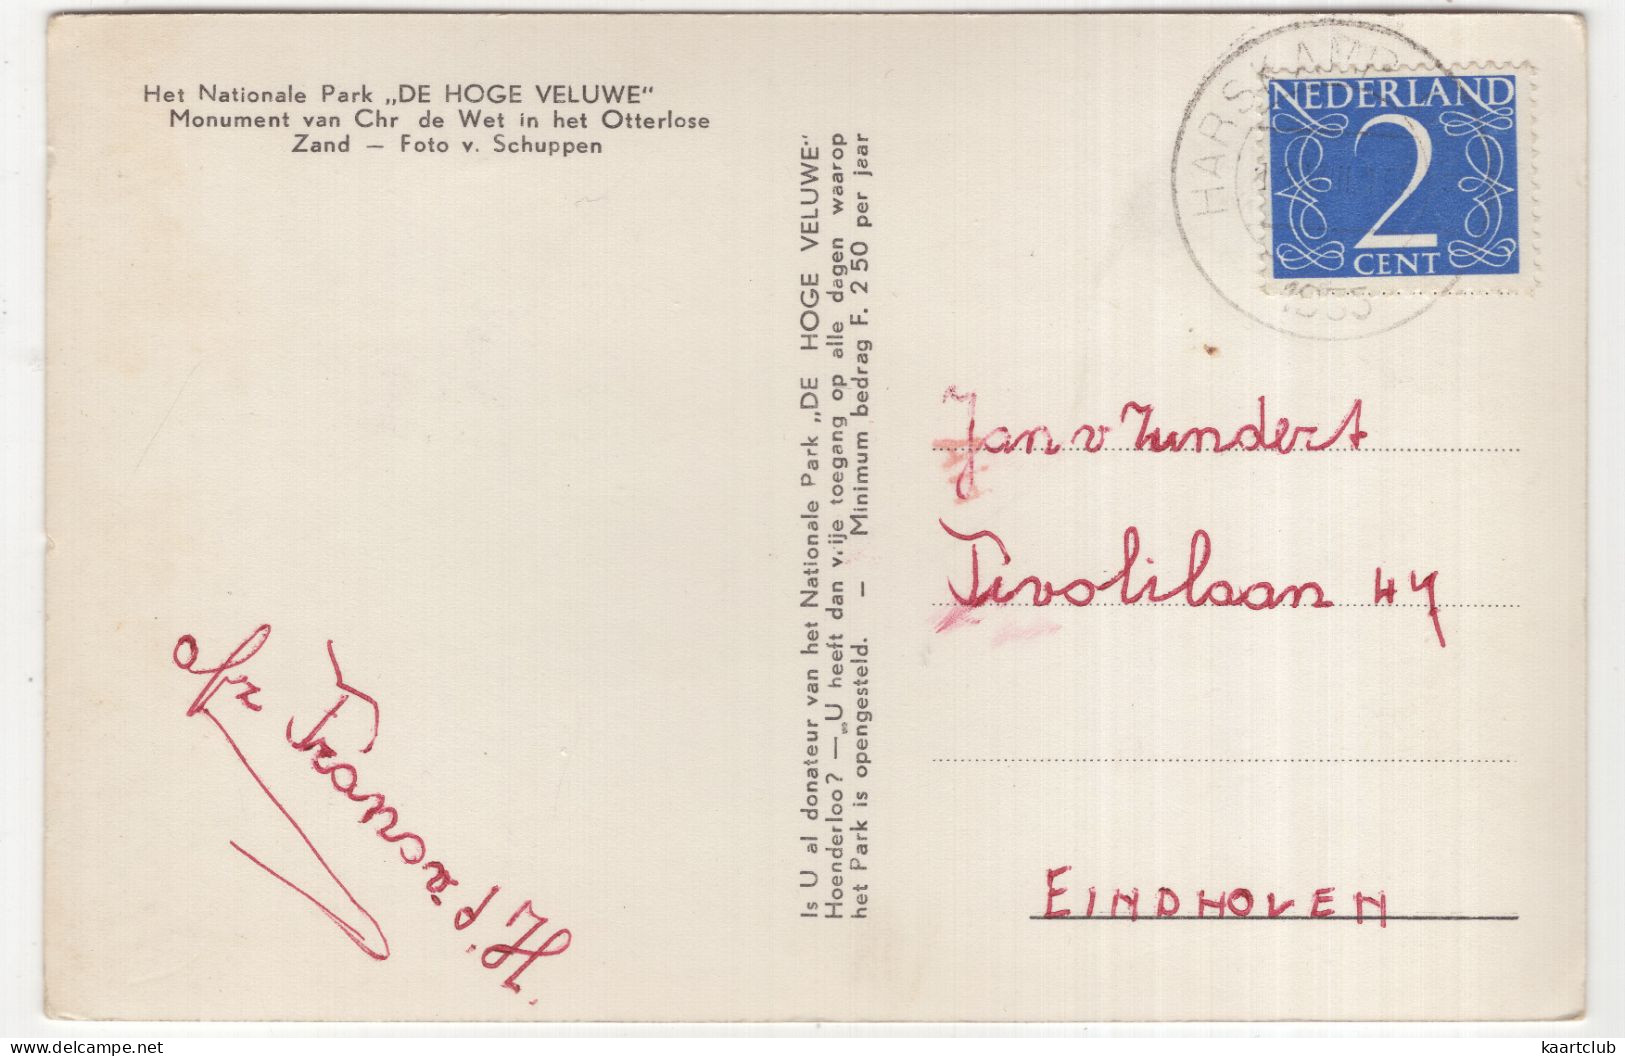 Het Nationale Park „DE HOGE VELUWE"
Monument van Chr de Wet in het Otterlose
Zand — Foto v. Schuppen
Is U al donateur van het Nationale Park „DE HOGE VELUWE"
Hoenderloo? — „U heeft dan vrije toegang op alle dagen waarop
het Park is opengesteld. — Minimum bedrag F. 2 50 per jaar
HARSKAMP
1955
NEDERLAND
2
CENT
Jan v Zundert
Tivolilaan 47
EINDHOVEN
afz
kaartclub
delcampe.net